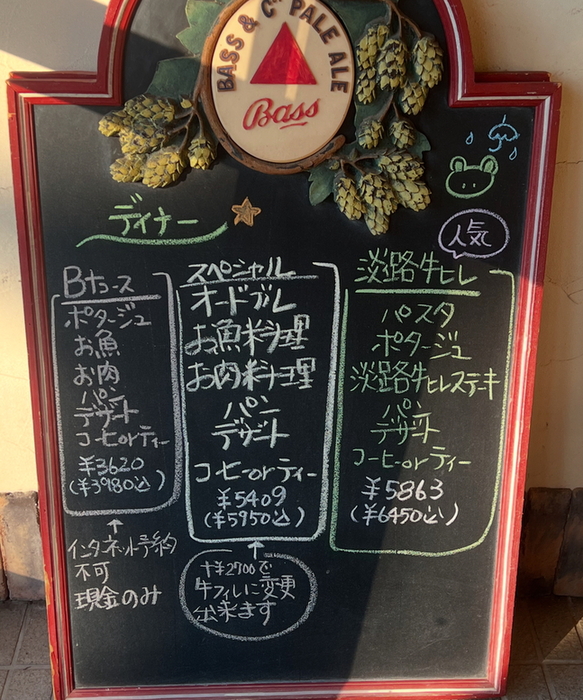 BASS & Co PALE ALE
Bass
ディナー
人気
Bナコース
ポタージュ
お魚
お肉
パン
デザート
コーヒorティー
¥3620
(¥3980込)
↑
インタネット予約
不可
現金のみ
スペシャル
オードブル
お魚料理
お肉料理
パン
デザート
コーヒーorティー
¥5409
(¥5950込)
↑
+¥2700で
牛フィレに変更
出来ます
淡路牛ヒレ
パスタ
ポタージュ
淡路牛ヒレステーキ
パン
デザート
コーヒーorティー
¥5863
(¥6450込)